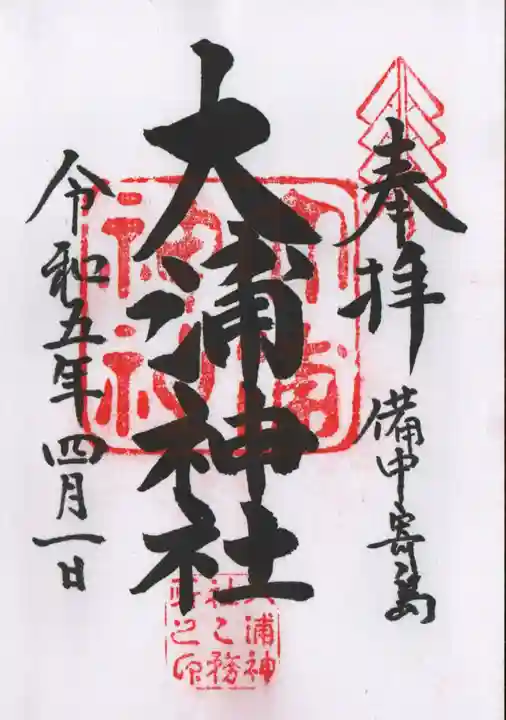 奉拝
備中寄島
大浦神社
令和五年四月一日
大浦
神社
大浦神
社之務
所之印